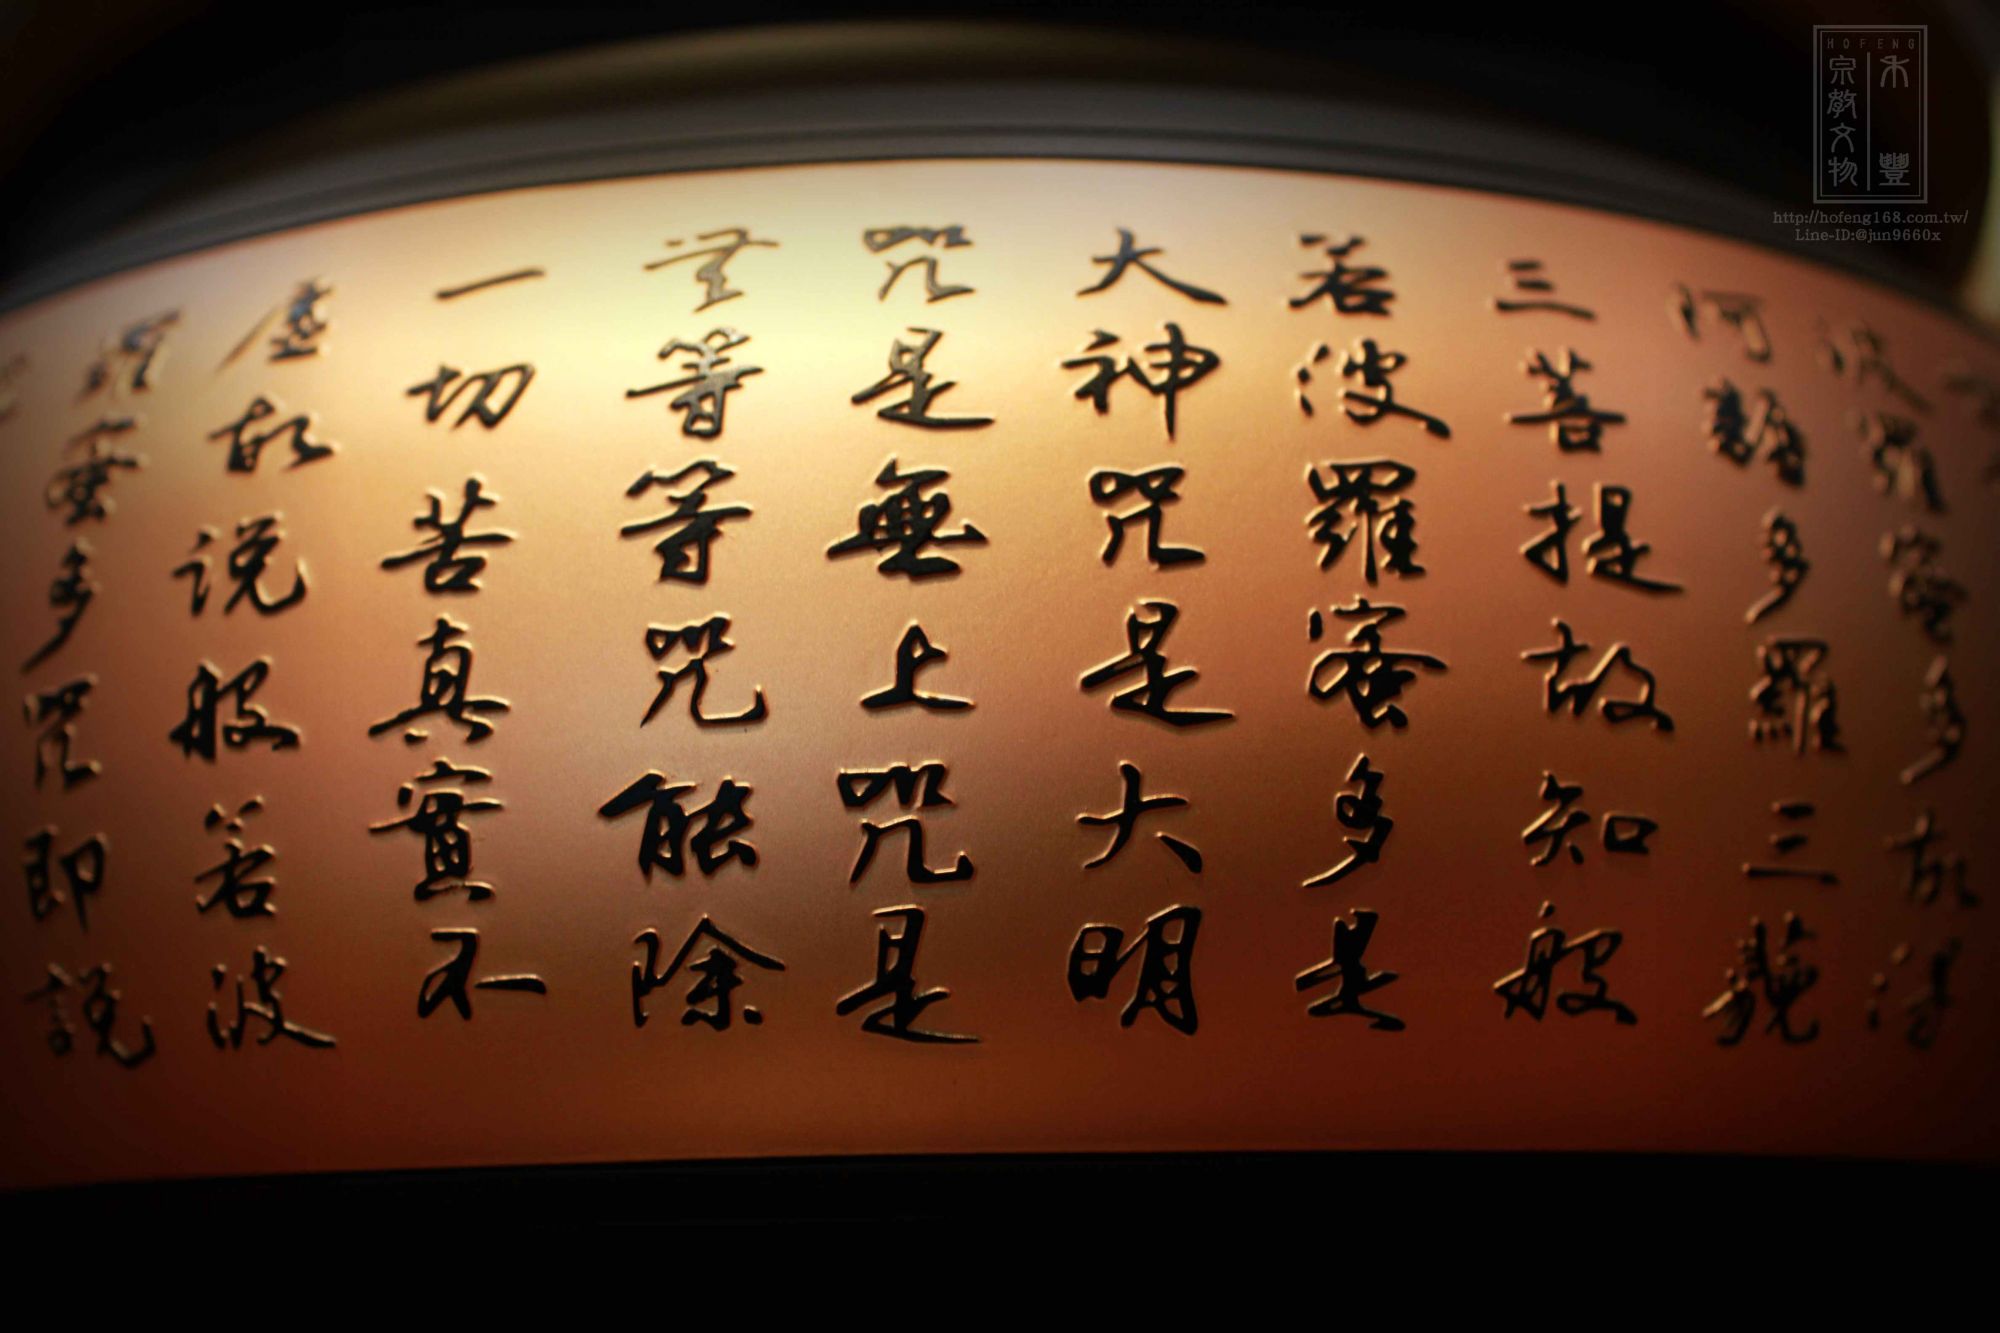 波羅蜜多故得
阿耨多羅三藐
三菩提故知般
若波羅蜜多是
大神咒是大明
咒是無上咒是
無等等咒能除
一切苦真實不
虛故說般若波
羅蜜多咒即說
HOFENG
禾豐
宗教文物
http://hofeng168.com.tw/
Line-ID:@jun9660x